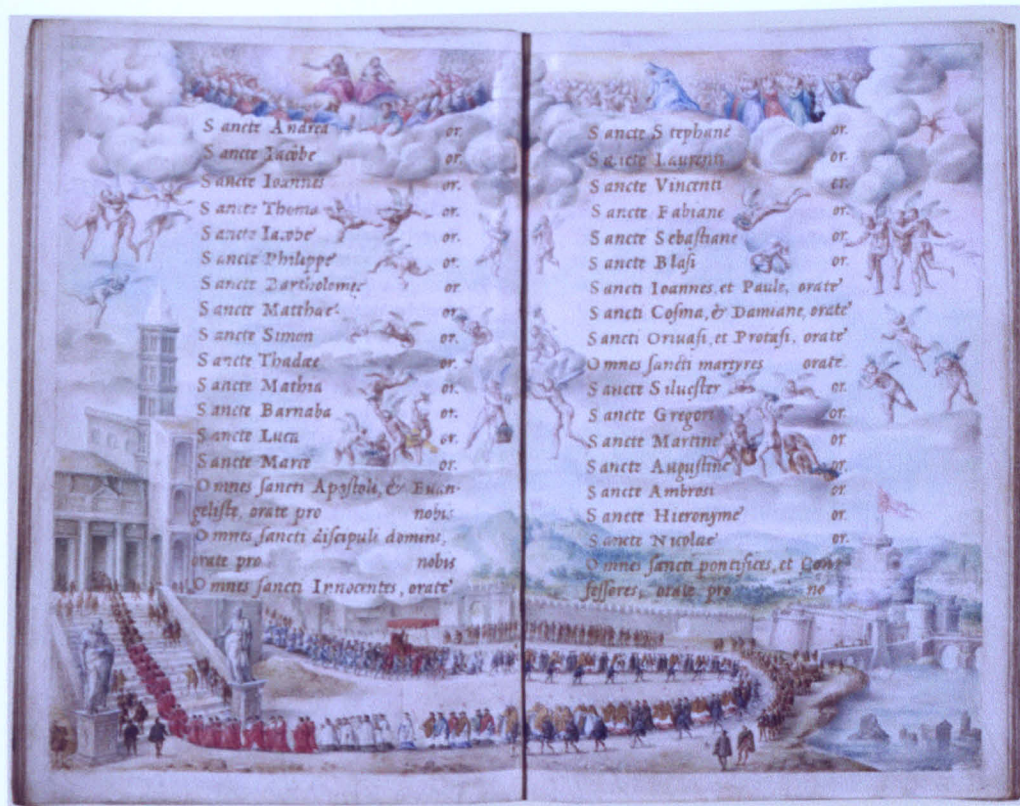 Sancte Andrea or.
Sancte Iacobe or.
Sancte Ioannes or.
Sancte Thoma or.
Sancte Iacobe or.
Sancte Philippe or.
Sancte Bartholomeę or
Sancte Matthae or.
Sancte Simon or.
Sancte Thadæe or.
Sancte Mathia or.
Sancte Barnaba or.
Sancte Luca or.
Sancte Marce or.
Omnes sancti Apostoli, & Euan-
geliste, orate pro nobis
Omnes sancti discipuli domini,
orate pro nobis
Omnes sancti Innocentes, orate
Sancte Stephane or.
Sancte Laurenti or.
Sancte Vincenti or.
Sancte Fabiane or.
Sancte Sebastiane or.
Sancte Blasi or.
Sancti Ioannes, et Paule, orate
Sancti Cosma, & Damiane, orate
Sancti Gruasi, et Protasi, orate
Omnes sancti martyres orate.
Sancte Siluester or.
Sancte Gregori or.
Sancte Martine or
Sancte Augustine or.
Sancte Ambrosi or.
Sancte Hieronyme or.
Sancte Nicolae or.
Omnes sancti pontifices, et Con-
fessores, orate pro no